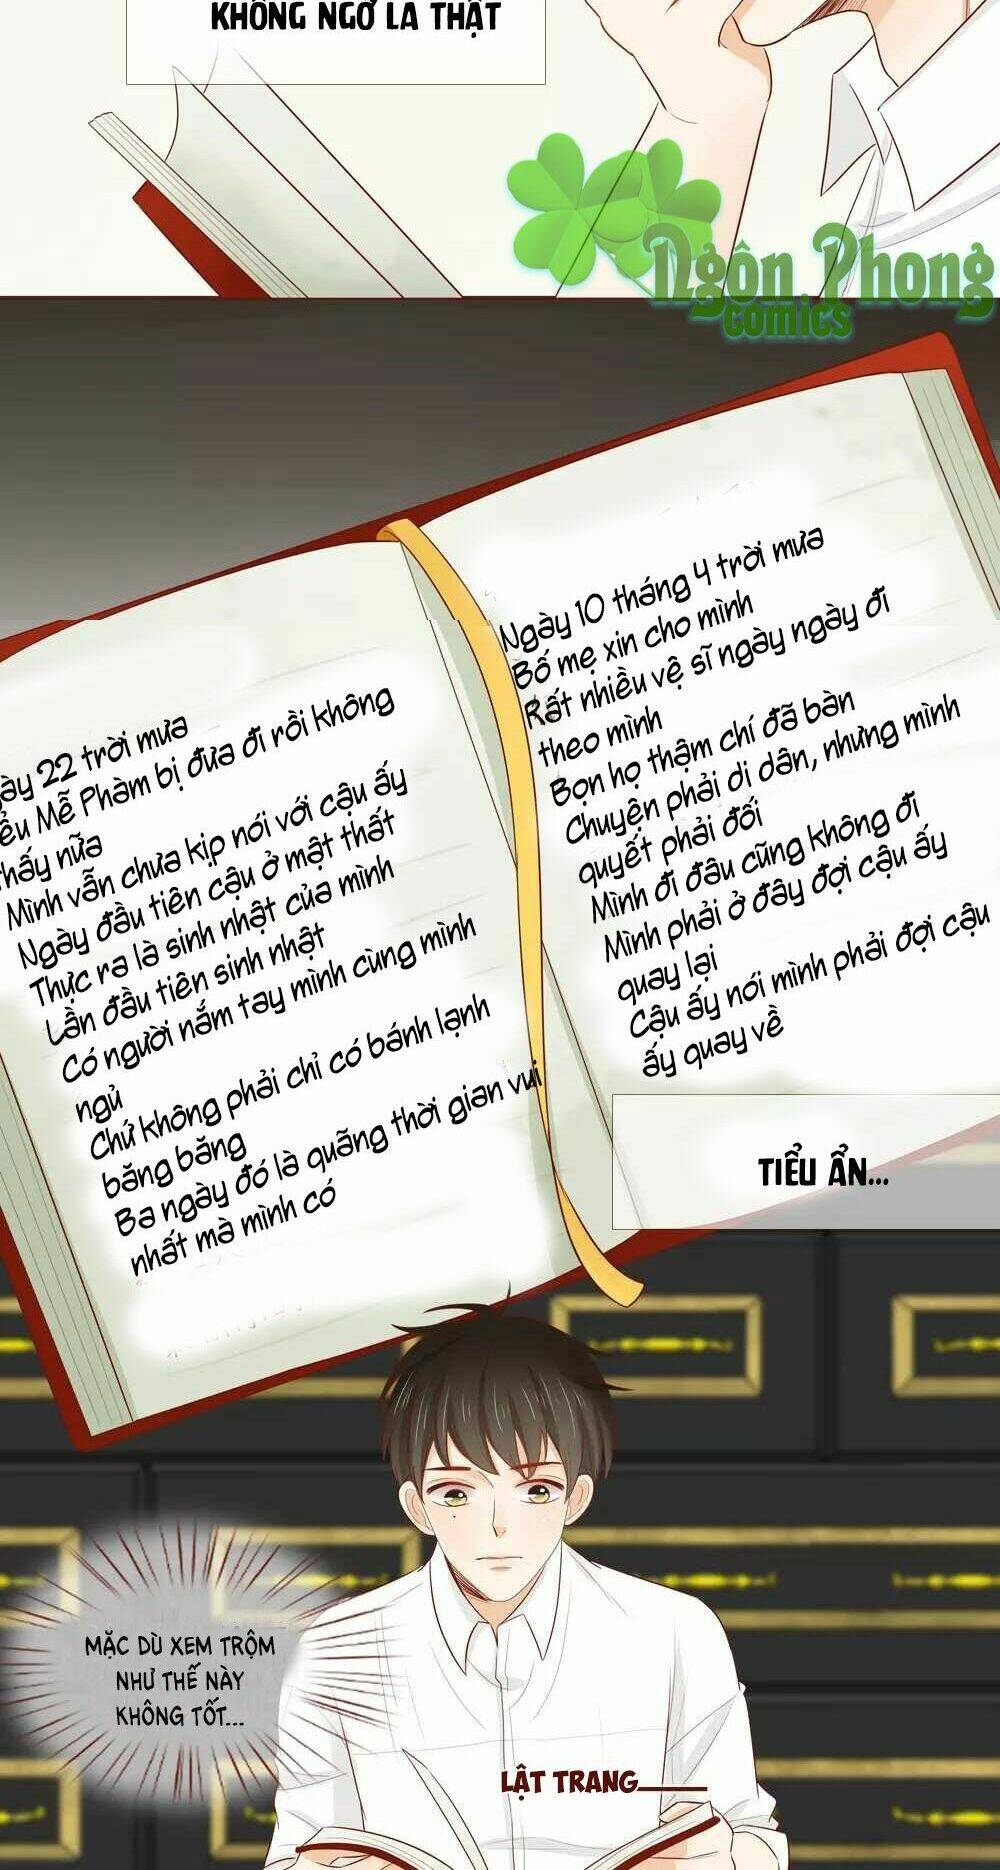 KHÔNG NGỜ LÀ THẬT
Ngôn Phong
comics
22 trời mưa
Mễ Phàm bị đưa đi rồi không
thấy nữa
Mình vẫn chưa kịp nói với cậu ấy
Ngày đầu tiên cậu ở mật thất
Thực ra là sinh nhật của mình
Lần đầu tiên sinh nhật
Có người nắm tay mình cùng mình
ngủ
Chứ không phải chỉ có bánh lạnh
băng băng
Ba ngày đó là quãng thời gian vui
nhất mà mình có
Ngày 10 tháng 4 trời mưa
Bố mẹ xin cho mình
Rất nhiều vệ sĩ ngày ngày đi
theo mình
Bọn họ thậm chí đã bàn
Chuyện phải di dân, nhưng mình
quyết phải đối
Mình đi đâu cũng không đi
Mình phải ở đây đợi cậu ấy
quay lại
Cậu ấy nói mình phải đợi cậu
ấy quay về
TIỂU ẨN...
MẶC DÙ XEM TRỘM
NHƯ THẾ NÀY
KHÔNG TỐT...
LẬT TRANG